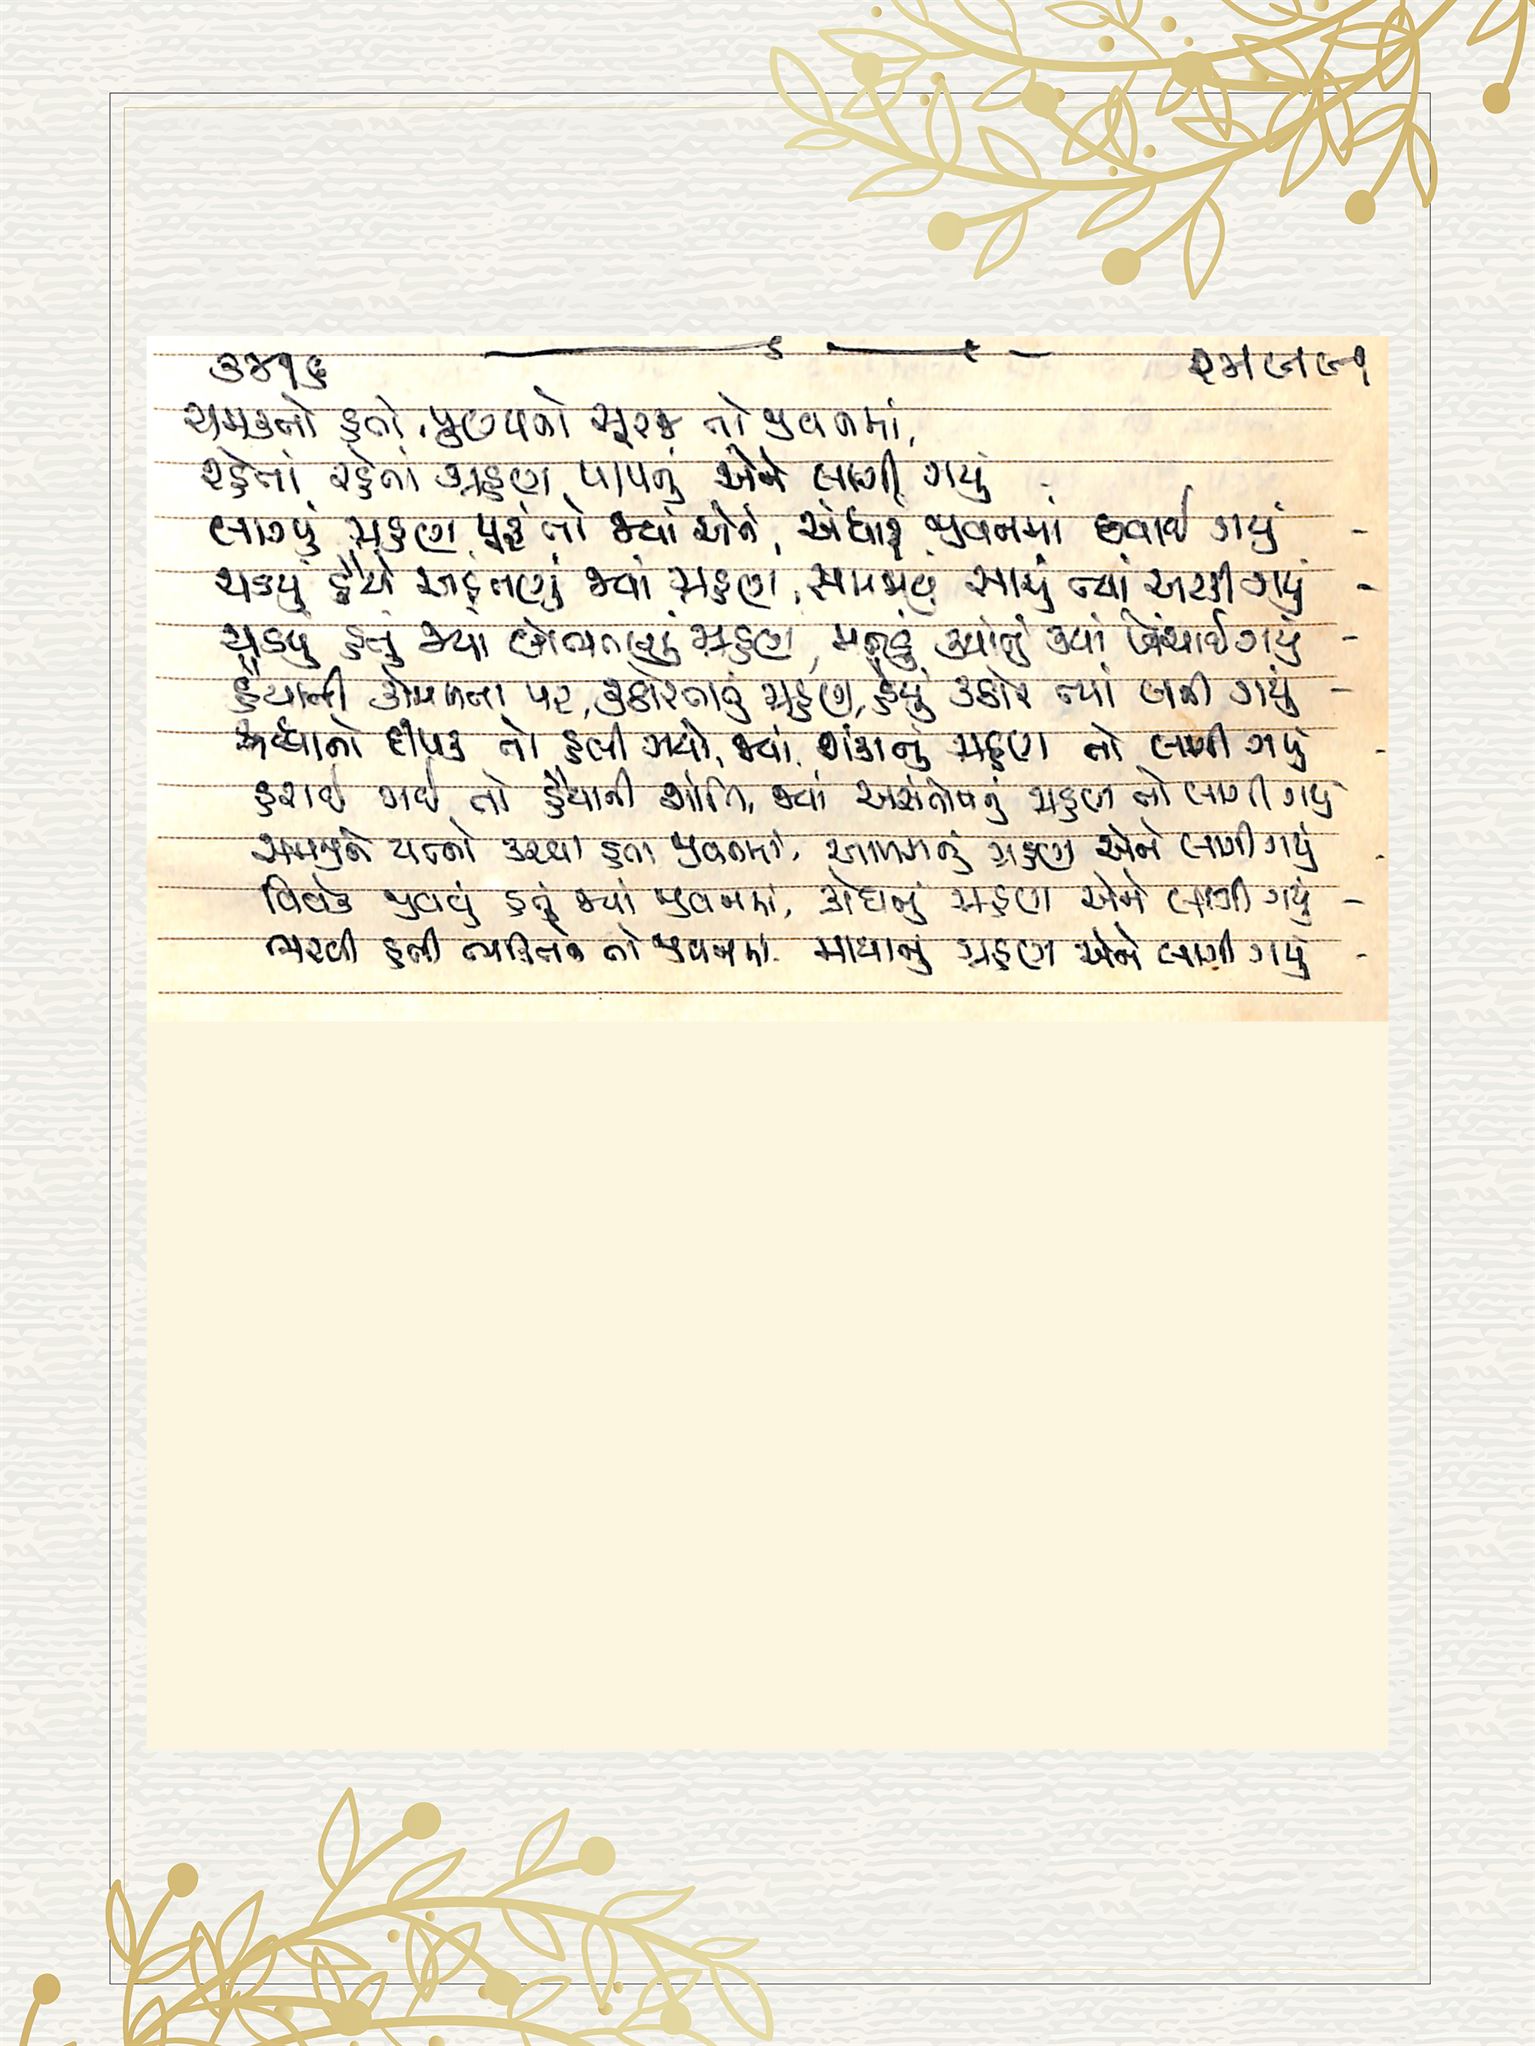 ૩૪૧૬
ચમકતો હતો, પુણ્યનો સૂરજ તો જીવનમાં,
રહેતાં રહેતાં ગ્રહણ પાપનું એને લાગી ગયું
લાગ્યું ગ્રહણ પૂરું તો જ્યાં એને, અંધારું જીવનમાં છવાઈ ગયું -
ચડયું હૈયે અહંતણું જ્યાં ગ્રહણ, સમજણ સાચું ત્યાં ખસી ગયું -
ચડયું હતું જ્યાં લોભતણું ગ્રહણ, મનડું ક્યાંનું ક્યાં ખેંચાઈ ગયું -
હૈયાની કોમળતા પર, કઠોરતાનું ગ્રહણ, હૈયું કઠોર ત્યાં બની ગયું -
શ્રદ્ધાનો દીપક તો હલી ગયો, જ્યાં શંકાનું ગ્રહણ તો લાગી ગયું -
હરાઈ ગઈ તો હૈયાની શાંતિ, જ્યાં અસંતોષનું ગ્રહણ તો લાગી ગયું
સમજીને યત્નો કરવા હતા જીવનમાં, આળસનું ગ્રહણ એને લાગી ગયું -
વિવેકે જીવવું હતું જ્યાં જીવનમાં, ક્રોધનું ગ્રહણ એને લાગી ગયું -
ભરવી હતી ભક્તિને તો જીવનમાં, માયાનું ગ્રહણ એને લાગી ગયું -